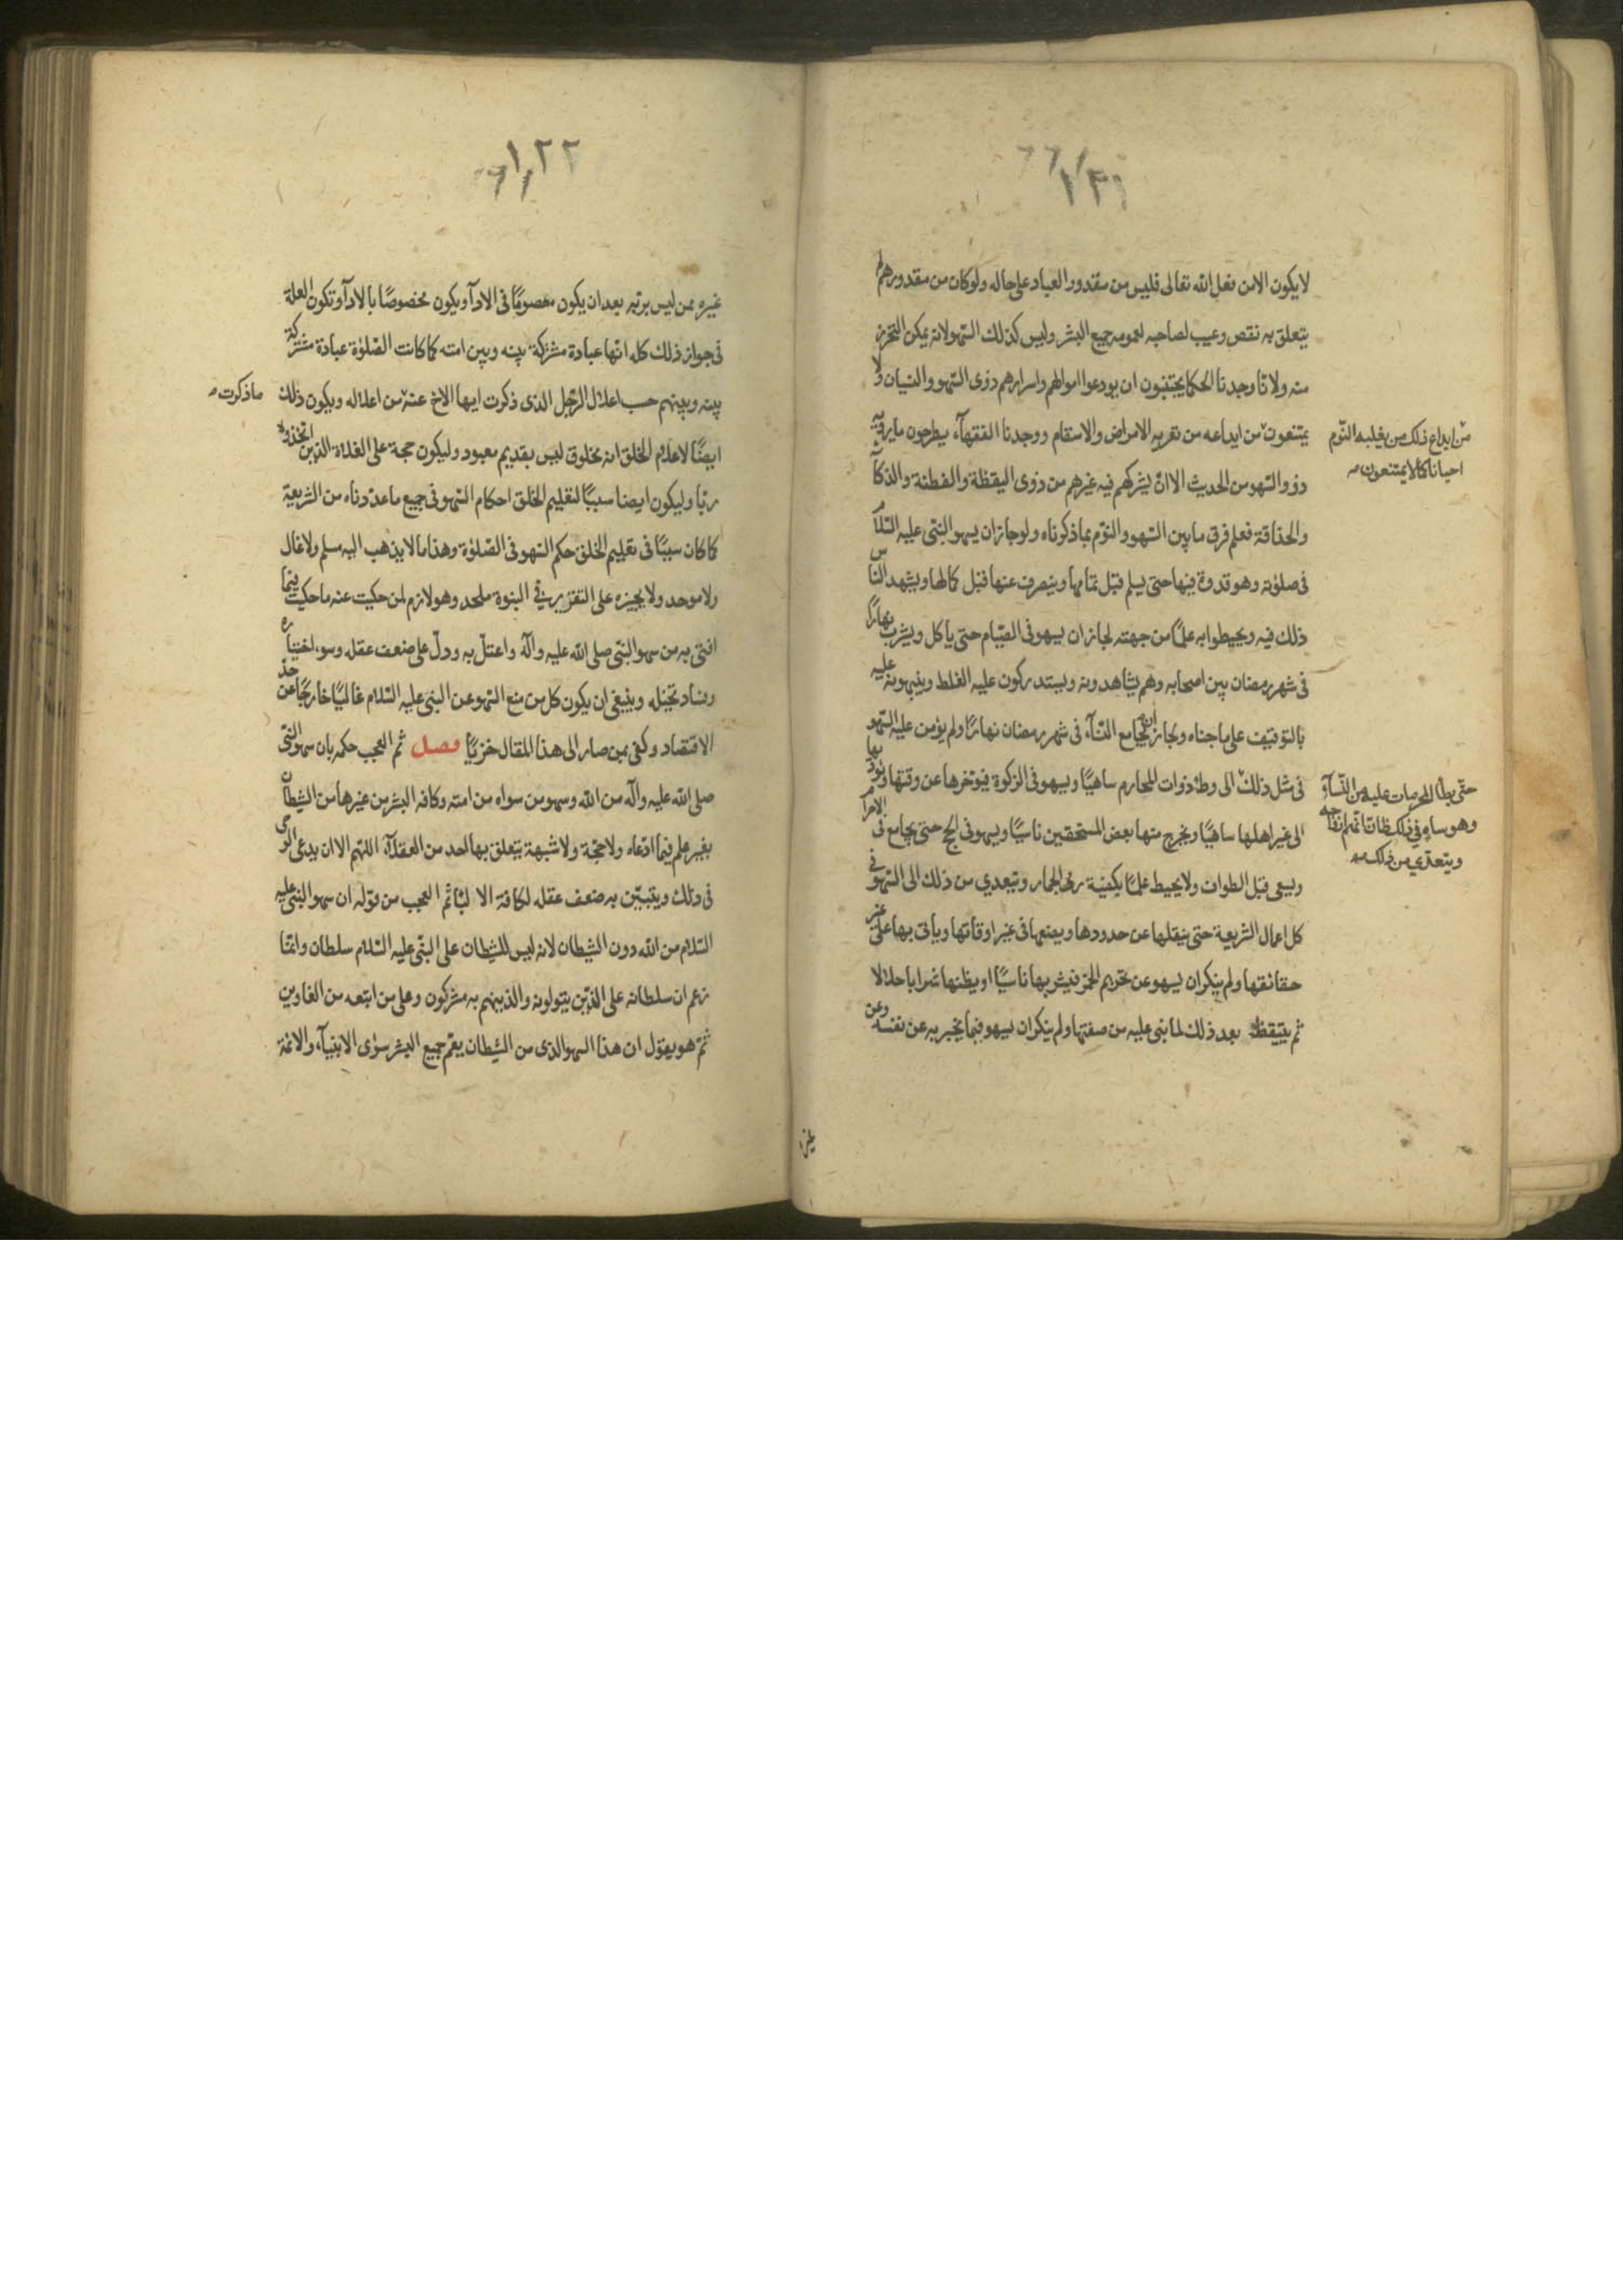 ١٢١
لا يكون الا من فعل الله تعالى فليس من مقدور العباد على حاله ولو كان من مقدورهم لم
يتعلق به نقص وعيب لصاحبه لعمومه جميع البشر وليس كذلك السهو لانه يمكن التحرز
منه ولانا وجدنا الحكما يجتنبون ان يودعوا اموالهم واسرارهم ذوى السهو والنسيان ولا
يمتنعون من ايداعه من تعريه الامراض والاسقام ووجدنا الفقهآء يطرحون ما يرويه
من ايداع ذلك من يغلبه النوم
احيانا كما لا يمتنعون
ذوو السهو من الحديث الا ان يشركهم فيه غيرهم من ذوى اليقظة والفطنة والذكآ
والحذاقة فعلم فرق ما بين السهو والنوم بما ذكرناه ولو جاز ان يسهو النبى عليه السلام
فى صلوته وهو قدوة فيها حتى يسلم قبل تمامها وينصرف عنها قبل كمالها ويشهد الناس
ذلك فيه ويحيطوا به علمًا من جهته لجاز ان يسهو فى الصيام حتى ياكل ويشرب نهارًا
فى شهر رمضان بين اصحابه وهم يشاهدونه ويستدركون عليه الغلط وينبهونه عليه
بالتوقيف على ما جناه ولجاز ان يجامع النسآء فى شهر رمضان نهارًا ولم يؤمن عليه السهو
فى مثل ذلك الى وطئ ذوات المحارم ساهيًا ويسهو فى الزكوة فيوخرها عن وقتها ويوديها
حتى يطأ المحرمات عليه من النسآء
وهو ساه فى ذلك ظان انهم ازواجه
ويتعدى من ذلك
الى غير اهلها ساهيًا ويخرج منها بعض المستحقين ناسيًا ويسهو فى الحج حتى يجامع فى الاحرام
ويسعى قبل الطواف ولا يحيط علمًا بكيفية رمى الجمار ويتعدي من ذلك الى السهو فى
كل اعمال الشريعة حتى ينقلها عن حدودها ويضعها فى غير اوقاتها وياتى بها على غير
حقائقها ولم ينكر ان يسهو عن تحريم الخمر فيشربها ناسيًا او يظنها شرابا حلالا
ثم يتيقظ بعد ذلك لما بنى عليه من صفتها ولم ينكر ان يسهو فيما يخبر به عن نفسه وعن
غيره
١٢٢
غيره ممن ليس بربه بعد ان يكون معصومًا فى الادآ ويكون مخصوصًا بالادآ وتكون العلة
فى جواز ذلك كله انها عبادة مشتركة بينه وبين امته كما كانت الصلوة عبادة مشتركة
بينه وبينهم حسب اعلال الرجل الذى ذكرت ايها الاخ عنه من اعلاله ويكون ذلك
ما ذكرت
ايضًا لاعلام الخلق انه مخلوق ليس بقديم معبود وليكون حجة على الغلاة الذين اتخذوه
ربّا وليكون ايضا سببًا لتعليم الخلق احكام السهو فى جميع ما عددناه من الشريعة
كما كان سببًا فى تعليم الخلق حكم السهو فى الصلوة وهذا ما لا يذهب اليه مسلم ولا غال
ولا موحد ولا يجيزه على التقرير فى النبوة ملحد وهو لازم لمن حكيت عنه ما حكيت فيما
افتى به من سهو النبى صلى الله عليه وآله واعتل به ودل على ضعف عقله وسوء اختياره
وفساد تخيله وينبغى ان يكون كل من منع السهو عن النبى عليه السلام غاليًا خارجًا عن حد
الاقتصاد وكفى بمن صار الى هذا المقال خزيًا فصل ثم العجب حكمه بان سهو النبى
صلى الله عليه وآله من الله وسهو من سواه من امته وكافه البشر من غيرها من الشيطان
بغير علم فيما ادعاه ولا حجة ولا شبهة يتعلق بها احد من العقلآء اللهم الا ان يدعى الوحى
فى ذلك ويتبين به ضعف عقله لكافة الالبا ثم العجب من قوله ان سهو النبى عليه
السلام من الله دون الشيطان لانه ليس للشيطان على النبى عليه السلام سلطان وانما
زعم ان سلطانه على الذين يتولونه والذينهم به مشركون وعلى من اتبعه من الغاوين
ثم هو يقول ان هذا السهو الذى من الشيطان يعم جميع البشر سوى الانبيآء والائمة